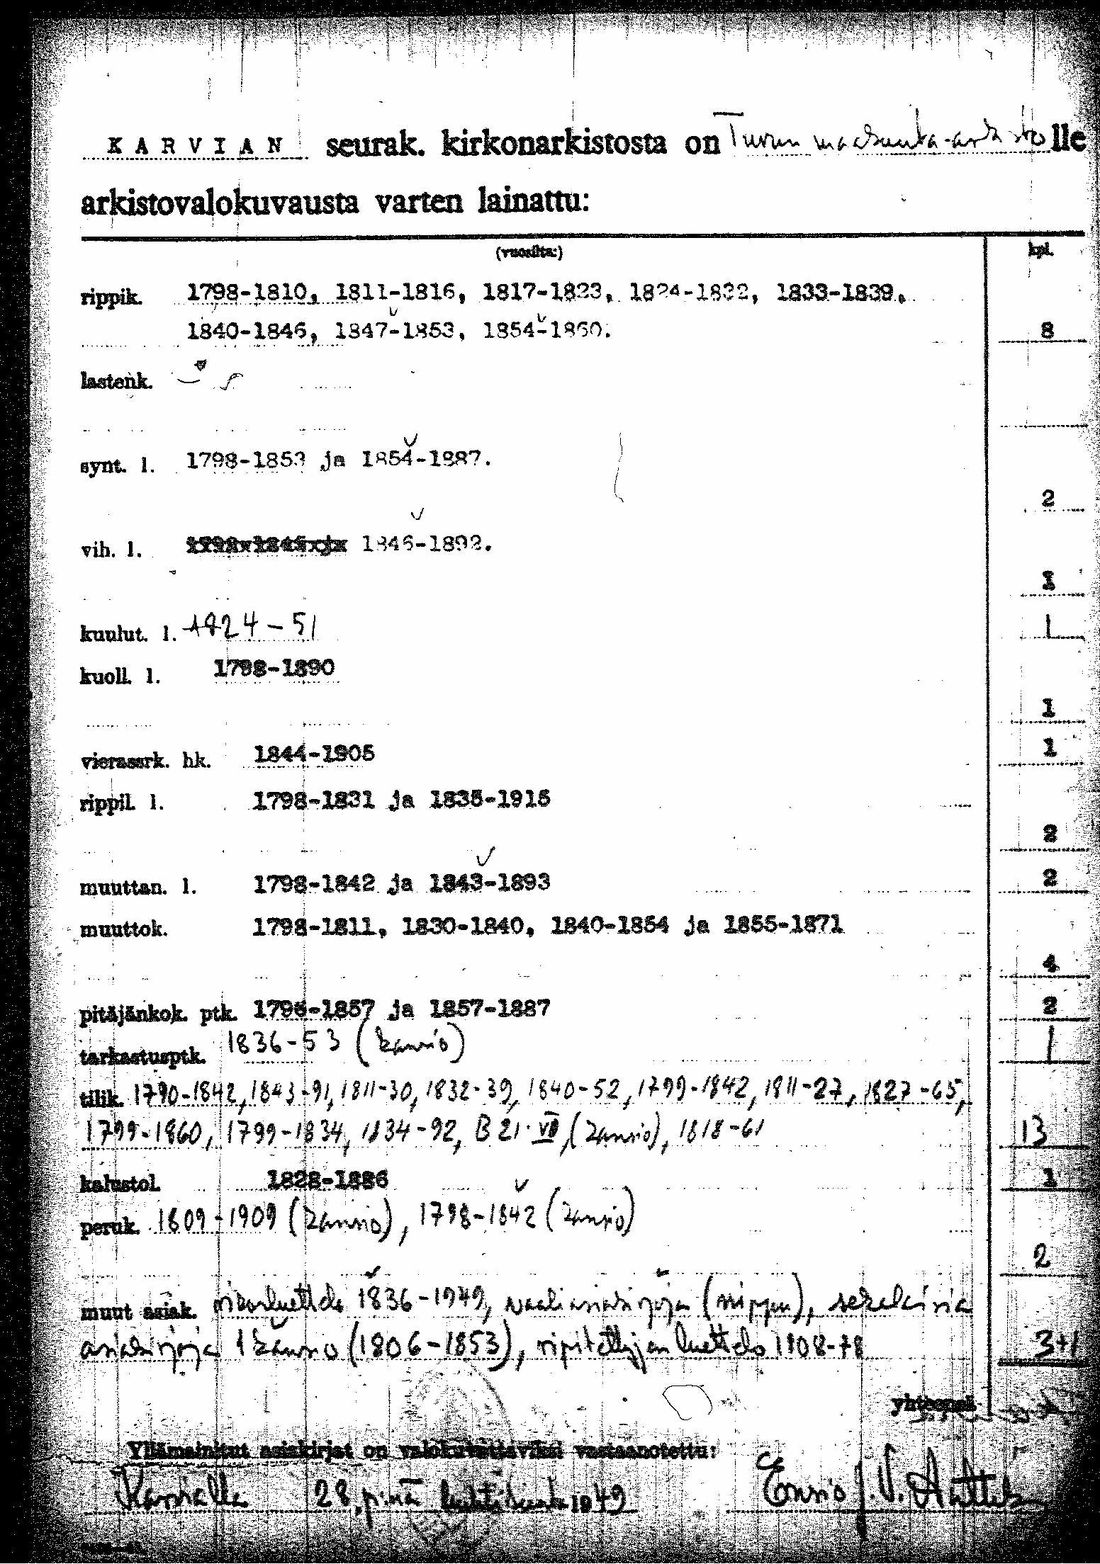 KARVIAN seurak. kirkonarkistosta on Turun maakunta-arkistolle
arkistovalokuvausta varten lainattu:
(vuosilta:) kpl.
rippik. 1798-1810, 1811-1816, 1817-1823, 1824-1832, 1833-1839,
1840-1846, 1847-1853, 1854-1860. 8
lastenk.
synt. l. 1798-1853 ja 1854-1887.
2
vih. l. 1846-1892.
1
kuulut. l. 1824-51 1
kuoll. l. 1798-1890
1
vierassrk. hk. 1844-1905 1
rippil. l. 1798-1831 ja 1835-1915
2
muuttan. l. 1798-1842 ja 1843-1893 2
muuttok. 1798-1811, 1830-1840, 1840-1854 ja 1855-1871
4
pitäjänkok. ptk. 1796-1857 ja 1857-1887 2
tarkastusptk. 1836-53 (kansio) 1
tilik. 1790-1842, 1843-91, 1811-30, 1832-39, 1840-52, 1799-1842, 1811-27, 1827-65,
1799-1860, 1799-1834, 1834-92, B 21 VII, (kansio), 1818-61 13
kalustol. 1828-1886 1
peruk. 1809-1909 (kansio), 1798-1842 (kansio)
2
muut asiak. 1836-1949, vaaliasiakirjoja (nippu), sekalaisia
asiakirjoja 1 kansio (1806-1853), ripitettyjen luettelo 1808-78 3+1
yhteensä
Yllämainitut asiakirjat on valokuvattaviksi vastaanotettu:
Karvialla 28 p:nä huhtikuuta 1949 Ensio J. V.